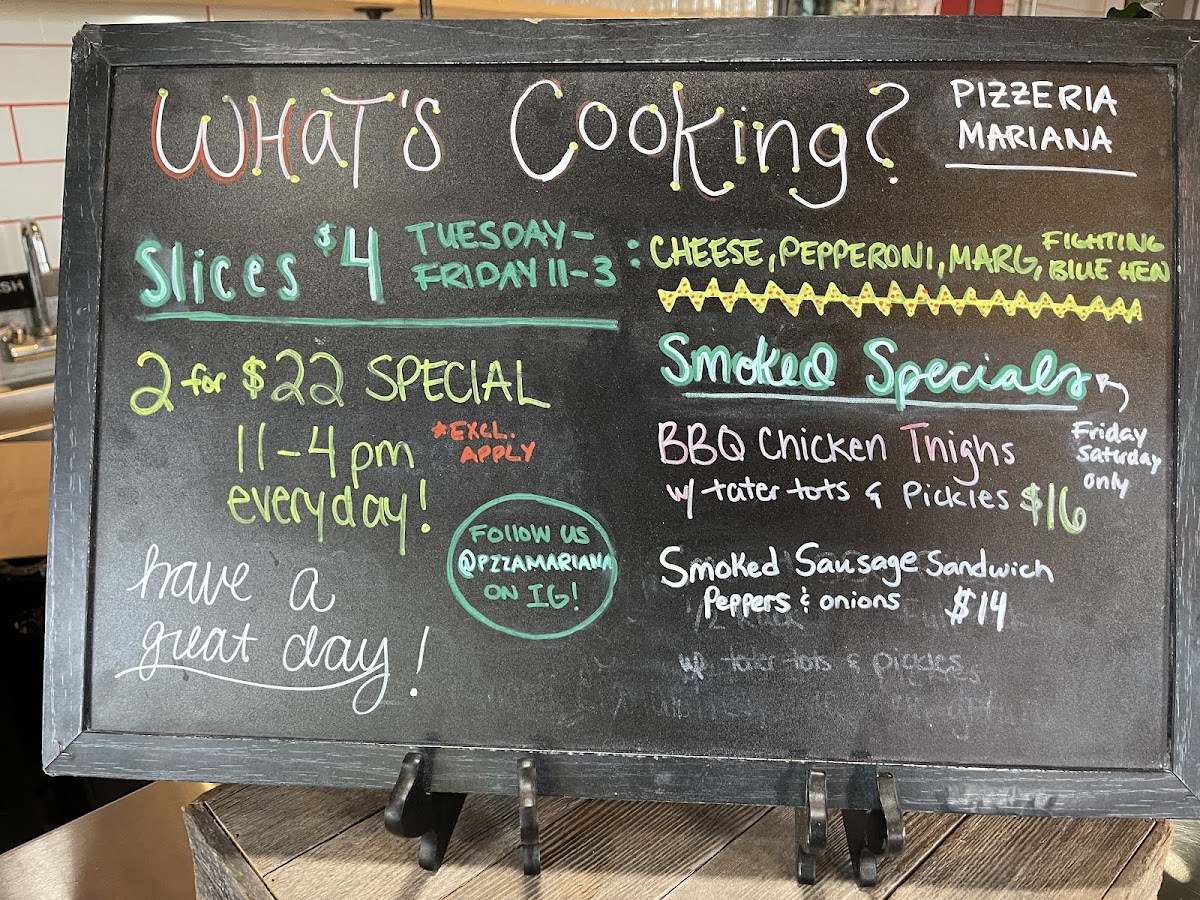 WHaT's Cooking?
PIZZERIA
MARIANA
Slices $4
TUESDAY-
FRIDAY 11-3
: CHEESE, PEPPERONI, MARG,
FIGHTING
BLUE HEN
2 for $22 SPECIAL
11-4pm
everyday!
*EXCL.
APPLY
have a
great day!
FOLLOW US
@PZZAMARIANA
ON IG!
Smoked Specials
Friday
Saturday
only
BBQ Chicken Thighs
w/ tater tots & Pickles $16
Smoked Sausage Sandwich
Peppers & onions $14
w/ tater tots & pickles